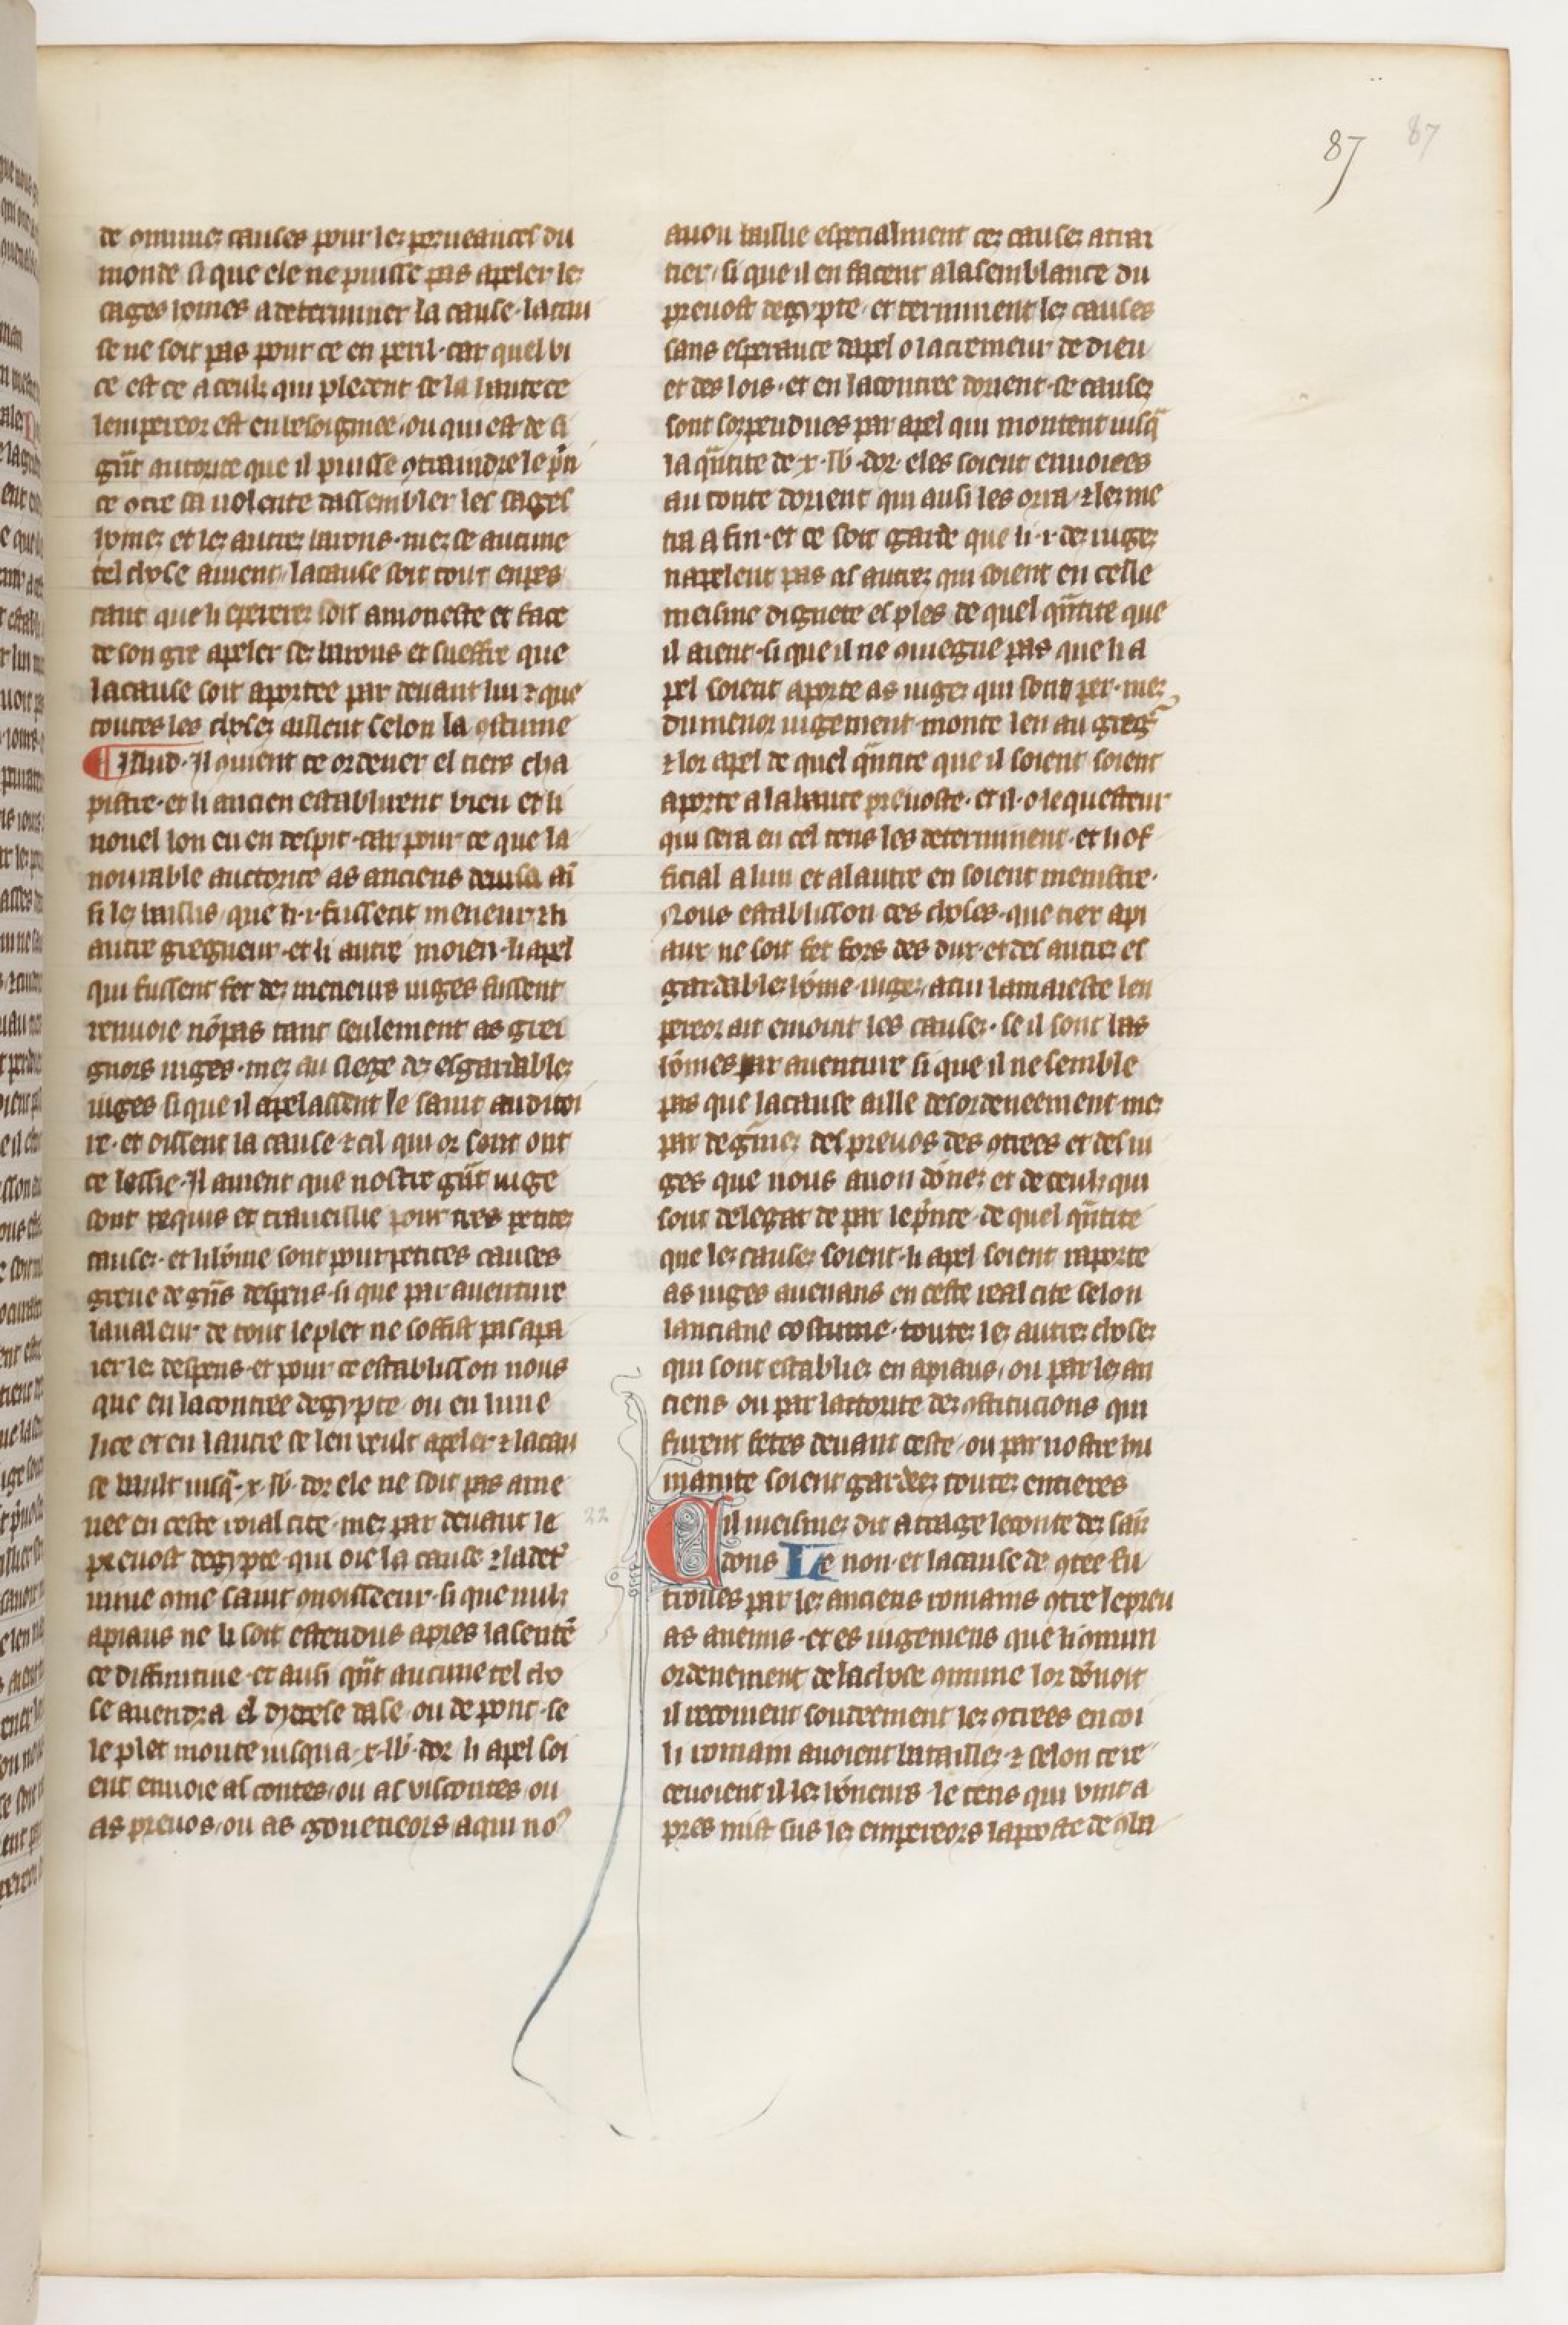 87 87
de ɔmunes causes pour les porueances du
monde si que ele ne puisse pas apeler les
sages homes a determiner la cause· la cau
se ne soit pas pour ce en peril· car quel vi
ce est ce a ceulz qui pledent se la hautece
lempereor est enbesoignee· ou qui est de si
gñt autorite que il puisse ꝯtraindre le pñ
ce otre sa volente dassembler les sages
homes et les autres barons· mes se aucune
tel chose auient· la cause soit tout enpes
tant que li empereres soit amoneste et face
de son gre apeler ses barons et sueffre que
la cause soit aportee par deuant lui ⁊ que
toutes les choses aillent selon la ꝯstume
¶ Illud· Il ꝯuient ce ordener el tiers cha
pistre· et li ancien establirent bien et li
nouel lon eu en despit· car pour ce que la
nourable auctorite as anciens deuisa aĩ
si les baillis· que li·i· fussent meneur ⁊ li
autre gregneur· et li autre moien· li apel
qui fussent fet des meneurs iuges fussent
renuoie nõ pas tant seulement as grei
gnors iuges· mes au siege des esgardables
iuges si que il apelassent le saint auditoi
re· et oissent la cause ⁊ cil qui or sont ont
ce lessie· Il auient que nostre gñt iuge
sont requis et traueillie pour tres petites
causes· et li hõme sont pour petites causes
greue de gñs despens· si que par auenture
la ualeur de tout le plet ne soffist pas a pa
ier les despens· et pour ce establisson nous
que en la contree degypte ou en lune
lice et en lautre se len veult apeler ⁊ la cau
se vault iusq̃·x·lb· dor ele ne soit pas ame
nee en ceste roial cite· mes par deuant le
preuost degypte· qui oie la cause ⁊ la det̃
mine ꝯme saint ꝯnoisseeur· si que nulz
apiaus ne li soit estendus apres la sentẽ
ce diffinitiue· et ausi qñt aucune tel cho
se auendra el dyocese dase· ou de pont· se
le plet monte iusqua·x·lb· dor li apel soi
ent enuoie as contes· ou as viscontes· ou
as preuos· ou as gouerneors a qui noꝰ
auon baillie especialment ces causes a trai
tier· si que il en facent a la semblance du
preuost degypte· et terminent les causes
sans esperance dapel o la cremeur de dieu
et des lois· et en la contree dorient· se causes
sont sorpendues par apel qui montent iusq̃
la qñtite de·x·lb· dor· eles soient enuoiees
au conte dorient qui ausi les orra· ⁊ les me
tra a fin· et ce soit garde que li·i· des iuges
napeleut pas as autres qui soient en celle
meisme dignete es ples de quel qñtite que
il aient· si que il ne ꝯuiegne pas que li a
pel soient aporte as iuges qui sont per· mes
du menor iugement monte len au gregñ
⁊ lor apel de quel qñtite que il soient soient
aporte a la haute preuoste· et il·o·le questeur
qui sera en cel tens les determinent· et li of
ficial a lun et a lautre en soient menistre·
Nous establisson ces choses· que tier api
aux ne soit fet fors des dux· et des autres es
gardables hõme iuges· a cui la maieste len
pereor ait enioint les causes· se il sont las
hõmes par auenture si que il ne semble
pas que la cause aille desordeneement· mes
par degñies des preuos des ꝯtrees et des iu
ges que nous auon dõnes et de ceulz qui
sont delegat de par le pñce· de quel qñtite
que les causes soient· li apel soient raporte
as iuges auenans en ceste real cite selon
lanciane costume· toutes les autres choses
qui sont establies en apiaus· ou par les an
ciens ou par lattorite des ꝯstitucions qui
furent fetes deuant ceste· ou par nostre hu
manite soient gardees toutes entieres
22 Cil meismes dit a trage le conte des saĩ
dons Le non et la cause de ꝯtee fu
troues par les anciens romains ꝯtre le preu
as auenus· et es iugemens que li ꝯmun
ordenement de la chose ꝯmune lor dõnoit
il recoiuent soutirement les ꝯtrees en coi
li romain auoient batailles· ⁊ selon ce re
ceuoient il les hõneurs· le tens qui vint a
pres mist sus les empereors la poste de ꝯba